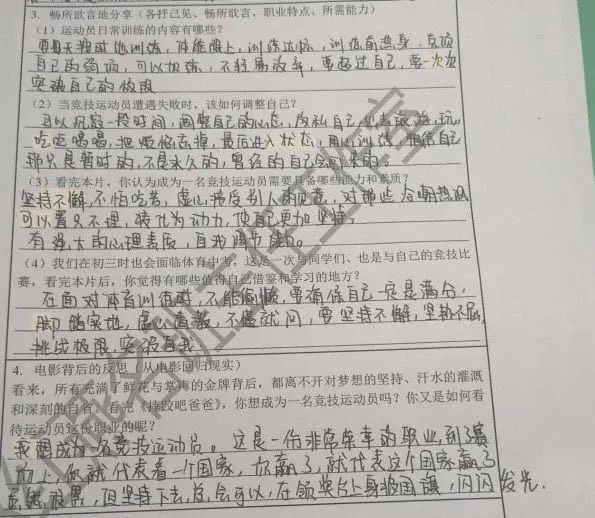 3. 畅所欲言地分享（各抒己见、畅所欲言、职业特点、所需能力）
（1）运动员日常训练的内容有哪些？
要每天按时地训练，体能跟上，训练达标，训练前热身，克服
自己的弱项，可以加练，不轻易放弃，要超过自己，要一次次
突破自己的极限
（2）当竞技运动员遭遇失败时，该如何调整自己？
可以沉寂一段时间，调整自己的心态，放松自己，出去旅游，玩，
吃吃喝喝，把烦恼丢掉，最后进入状态，再训练，相信自己
那只是暂时的，不是永久的，曾经的自己会回来的。
（3）看完本片，你认为成为一名竞技运动员需要具备哪些能力和素质？
坚持不懈，不怕吃苦，虚心接受别人的意见，对那些冷嘲热讽
可以置只不理，转化为动力，使自己更加坚持。
有强大的心理素质，自我调节能力。
（4）我们在初三时也会面临体育中考，这是一次与同学们、也是与自己的竞技比
赛，看完本片后，你觉得有哪些值得自己借鉴和学习的地方？
在面对体育训练时，不能偷懒，要确保自己一定是满分，
脚踏实地，虚心请教，不懂就问，要坚持不懈，坚韧不屈，
挑战极限，突破自我
4. 电影背后的反思（从电影回归现实）
看来，所有充满了鲜花与掌声的金牌背后，都离不开对梦想的坚持、汗水的灌溉
和深刻的自省。看完《摔跤吧爸爸》，你想成为一名竞技运动员吗？你又是如何看
待运动员这份职业的呢？
我想成为一名竞技运动员。这是一份非常荣幸的职业，到了赛
场上，你就代表着一个国家，你赢了，就代表这个国家赢了
虽然很累，但坚持下去，总会可以，在领奖台上身披国旗，闪闪发光.